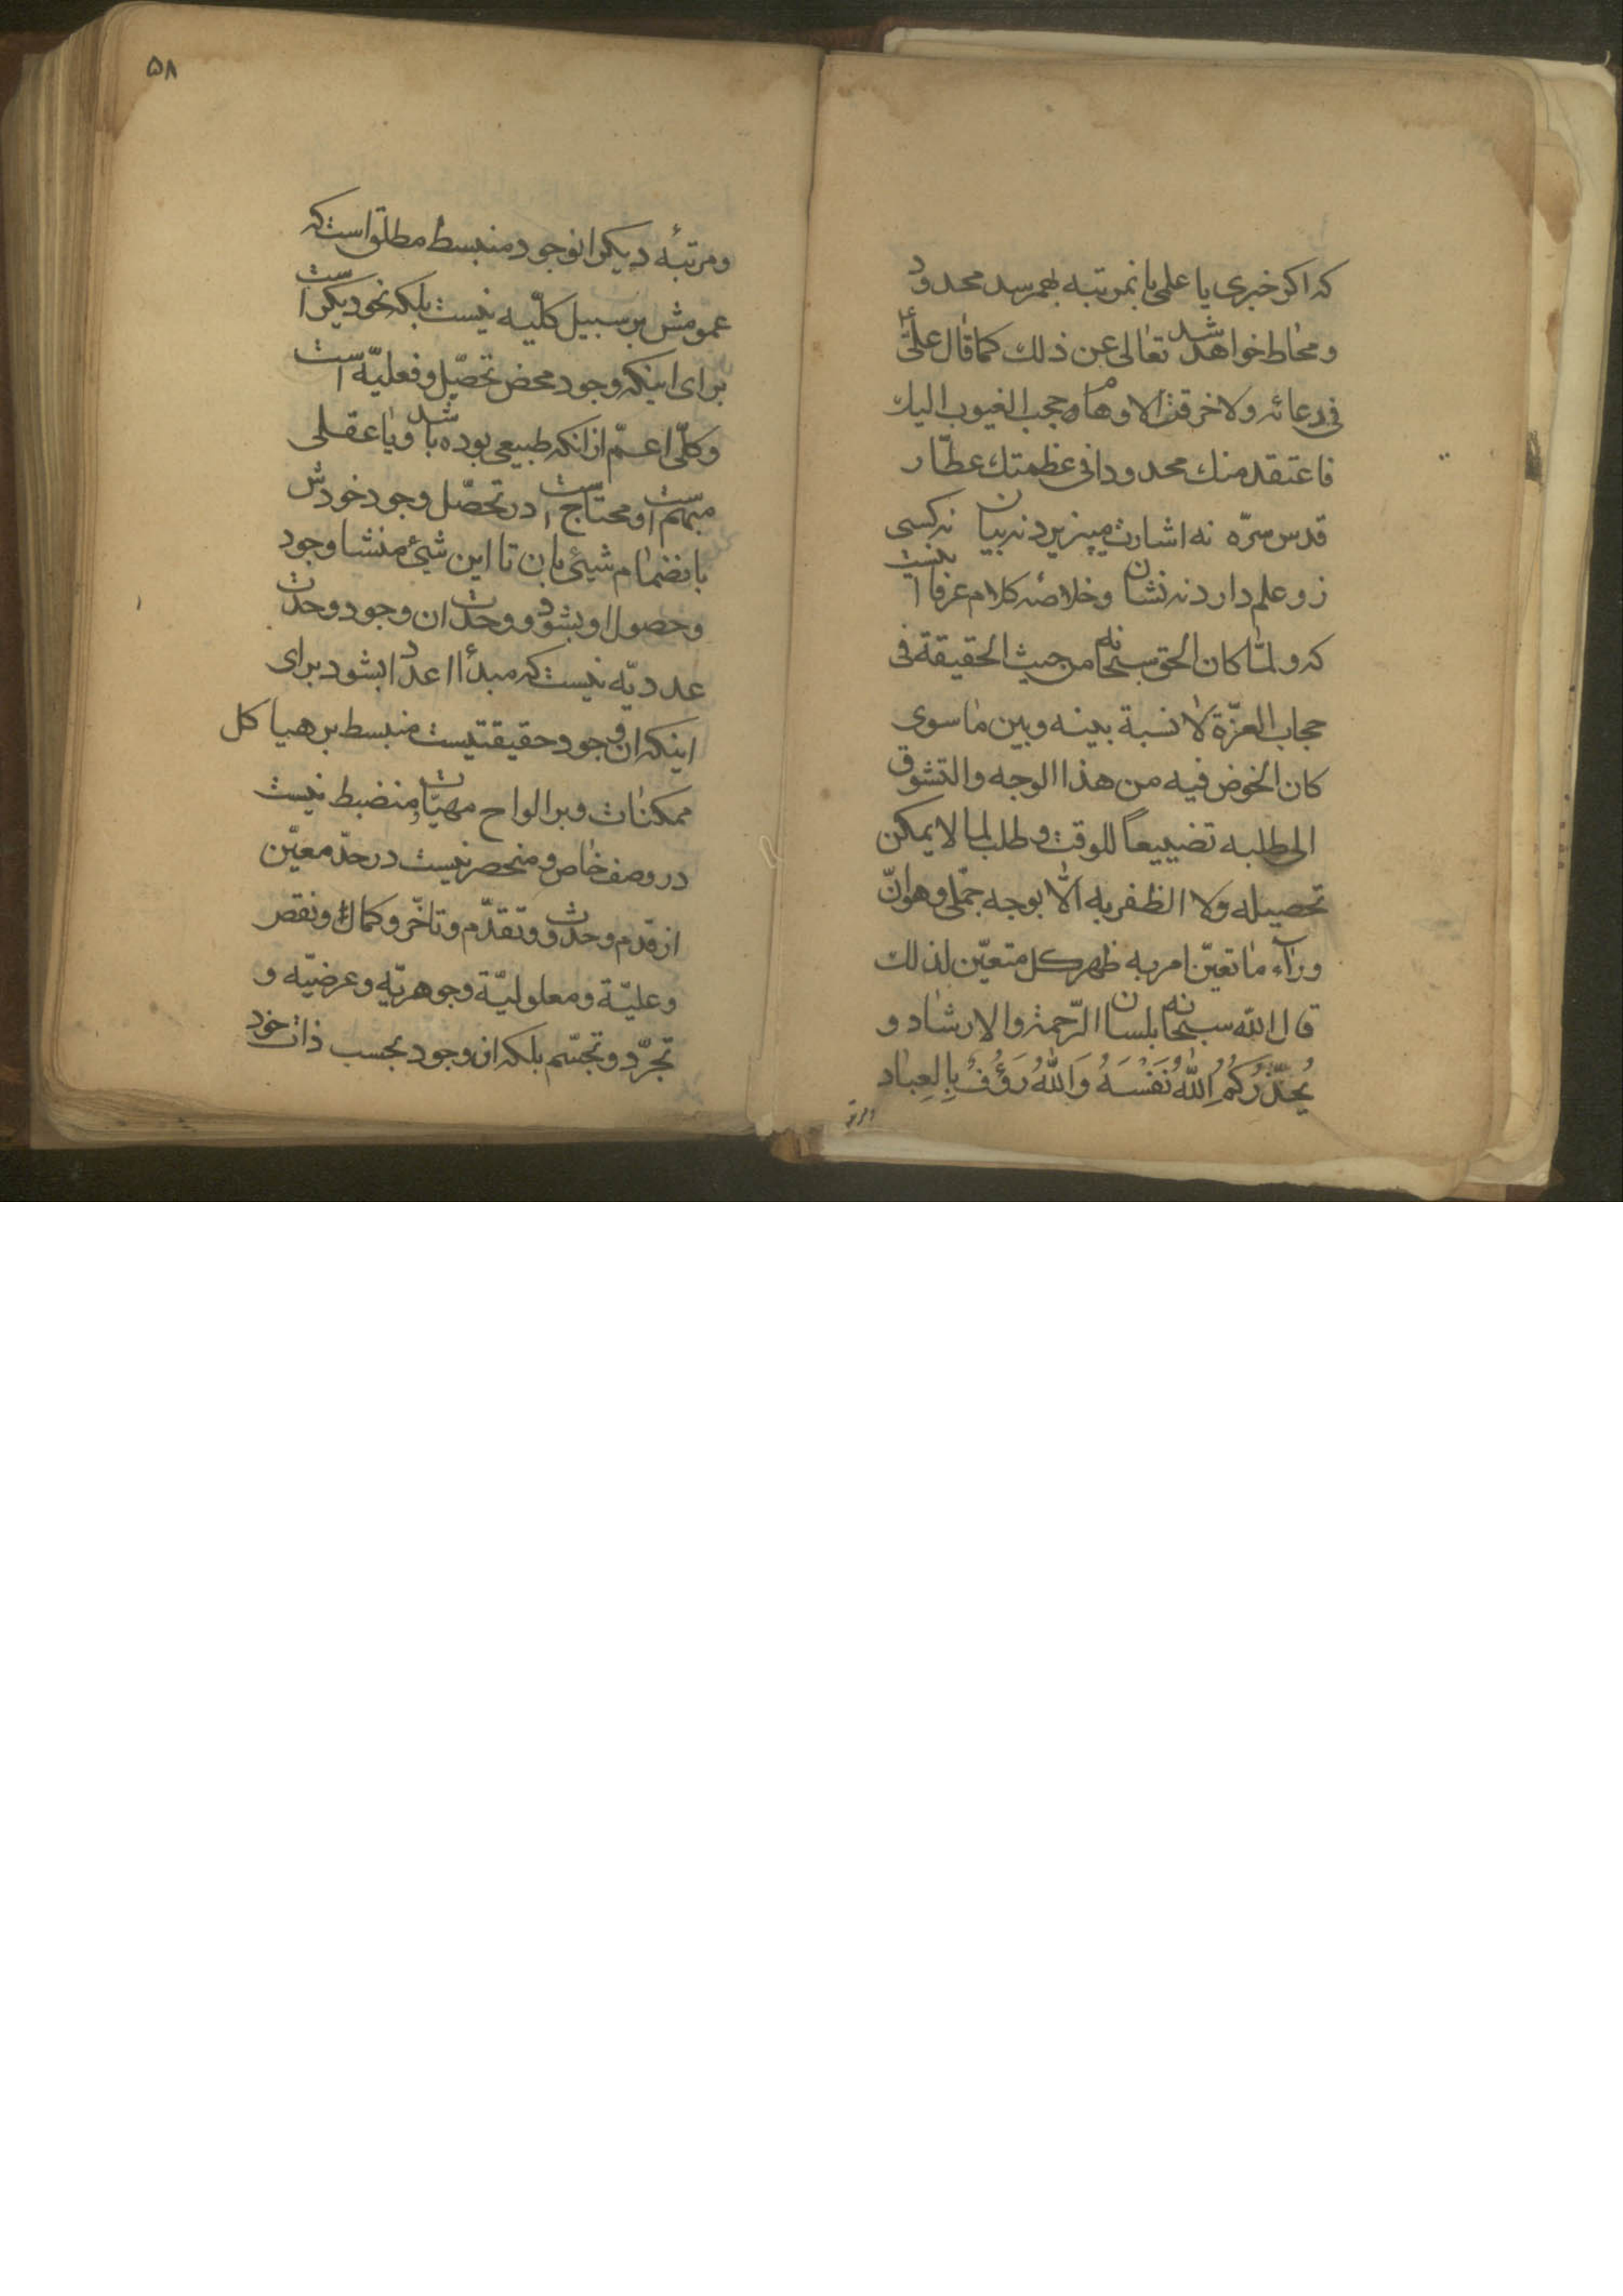 که اکر خبری یا علمی بانمرتبه بهمرسد محدود
ومحاط خواهد شد تعالی عن ذلك كما قال علی ع
فی دعائه ولا خرقت الاوهام حجب الغیوب الیك
فاعتقد منك محدودا فی عظمتك عطّار
قدس سرّه نه اشارت میپزیرد نه بیان نه کسی
زو علم دارد نه نشان وخلاصهٔ کلام عرفا اینست
که ولمّا كان الحق سبحانه من حیث الحقیقة فی
حجاب العزّة لا نسبة بینه وبین ما سوی
كان الخوض فیه من هذا الوجه والتشوق
الی طلبه تضییعاً للوقت وطلب لما لا یمکن
تحصیله ولا الظفر به الّا بوجه جمّلی وهو انّ
وراء ما تعیّن امر به ظهر كل متعیّن لذلك
قال الله سبحانه بلسان الرّحمة والارشاد و
یُحذّرُکُمُ اللهُ نَفْسَهُ وَاللهُ رَؤُفٌ بِالعِباد
ومرتبه
۵۸
ومرتبهٔ دیکر انوجود منبسط مطلق است که
عمومش بر سبیل کلّیه نیست بلکه نحو دیکر است
برای اینکه وجود محض تحصّل وفعلیّه است
وکلّی اعمّ از انکه طبیعی بوده باشد ویا عقلی
مبهم است ومحتاج است در تحصّل وجود خودش
بانضمام شیئی بان تا این شیئ منشا وجود
وحصول او بشود ووحدت ان وجود وحدت
عددیّه نیست که مبدأ اعداد بشود برای
اینکه ان وجود حقیقتیست منبسط بر هیاکل
ممکنات وبر الواح مهیّات ومنضبط نیست
در وصف خاص ومنحصر نیست در حدّ معیّن
از قدم وحدوث وتقدّم وتاخّر وکمال ونقص
وعلیّة ومعلولیّة وجوهریّه وعرضیّه و
تجرّد وتجسّم بلکه ان وجود بحسب ذات خود